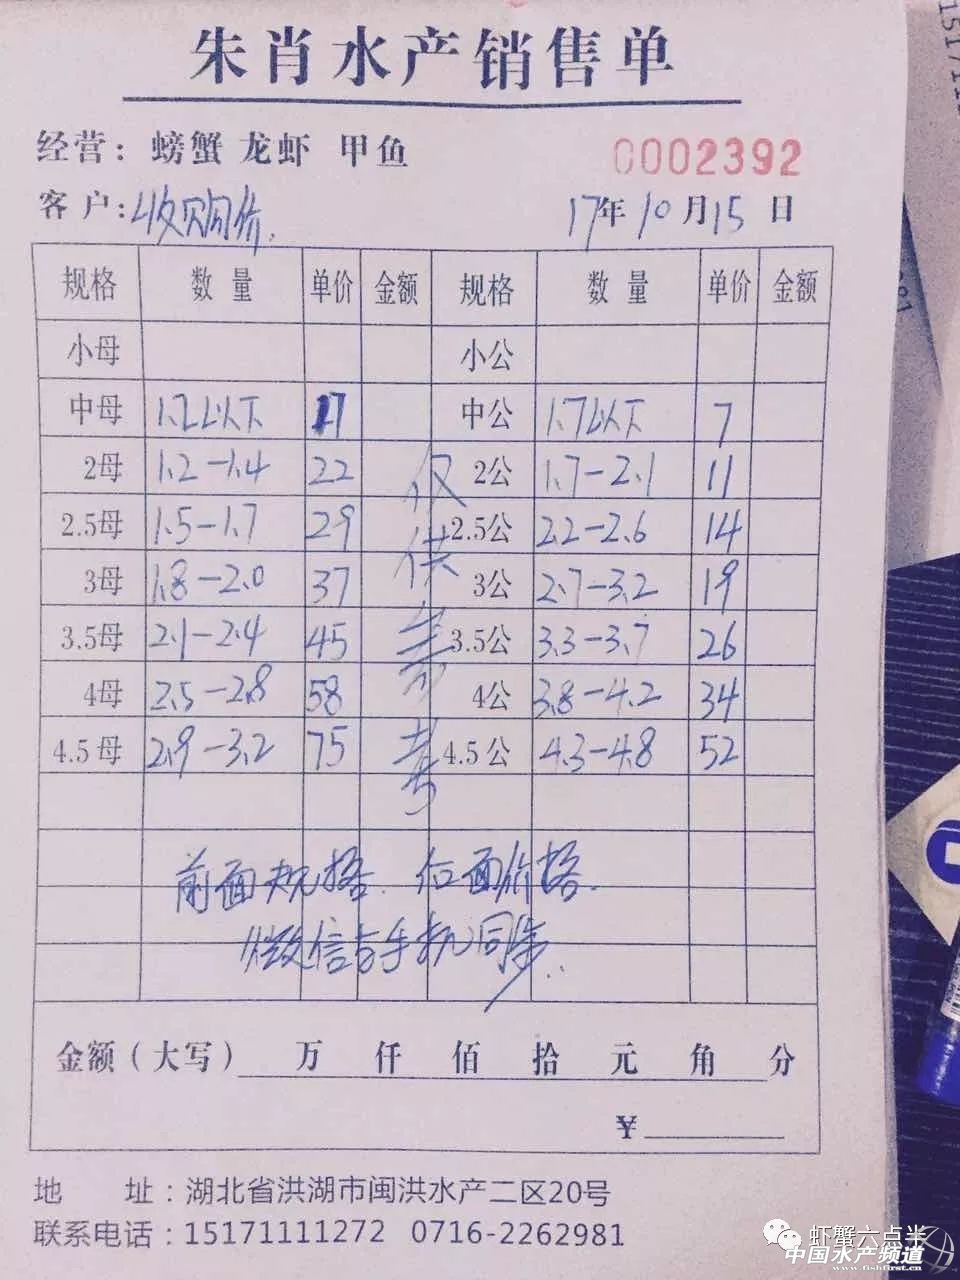 朱肖水产销售单
经营：螃蟹 龙虾 甲鱼
0002392
客户：收购价.
17年10月15日
规格 数量 单价 金额 规格 数量 单价 金额
小母 小公
中母 1.2以下 17 中公 1.7以下 7
2母 1.2-1.4 22 2公 1.7-2.1 11
2.5母 1.5-1.7 29 2.5公 2.2-2.6 14
3母 1.8-2.0 37 3公 2.7-3.2 19
3.5母 2.1-2.4 45 3.5公 3.3-3.7 26
4母 2.5-2.8 58 4公 3.8-4.2 34
4.5母 2.9-3.2 75 4.5公 4.3-4.8 52
仅供参考
前面规格.后面价格.
微信与手机同步..
金额（大写） 万 仟 佰 拾 元 角 分
¥
地 址：湖北省洪湖市闽洪水产二区20号
联系电话：15171111272 0716-2262981
虾蟹六点半
中国水产频道
www.fishfirst.cn